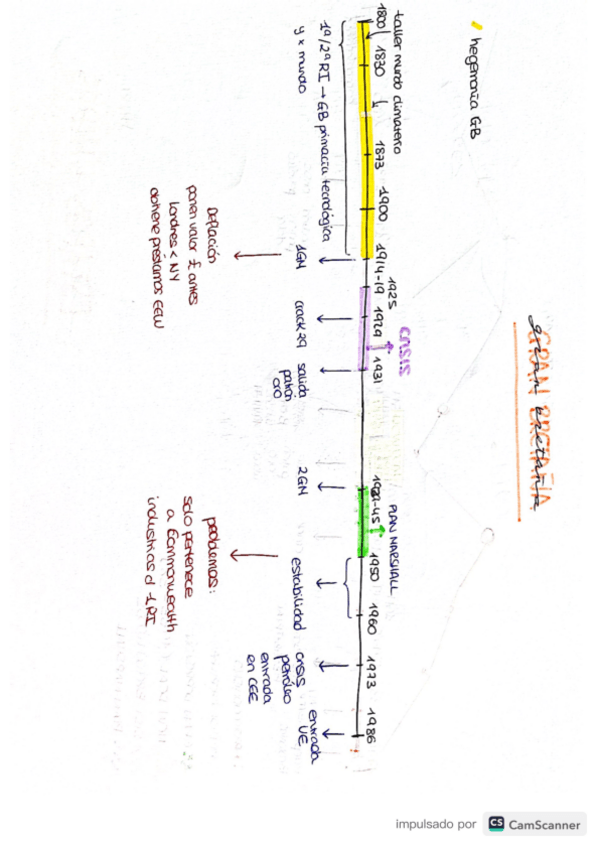 GRAN BRETAÑA
gran bretaña
hegemonía GB
taller mundo climaterio
1800
1830
1873
1900
1914-19
1925
1929
1931
CRISIS
PLAN MARSHALL
1950
1960
1973
1986
1ª/2ª RI → GB primacia tecnológica
y x mundo
1GM
crack 29
salida
patrón
oro
2GM
estabilidad
crisis
petróleo
entrada
en CEE
entrada
UE
Deflación
ponen valor £ antes
Londres < NY
obtiene préstamos EEUU
problemas:
solo pertenece
a Commonwealth
industrias d 1RI
impulsado por CS CamScanner